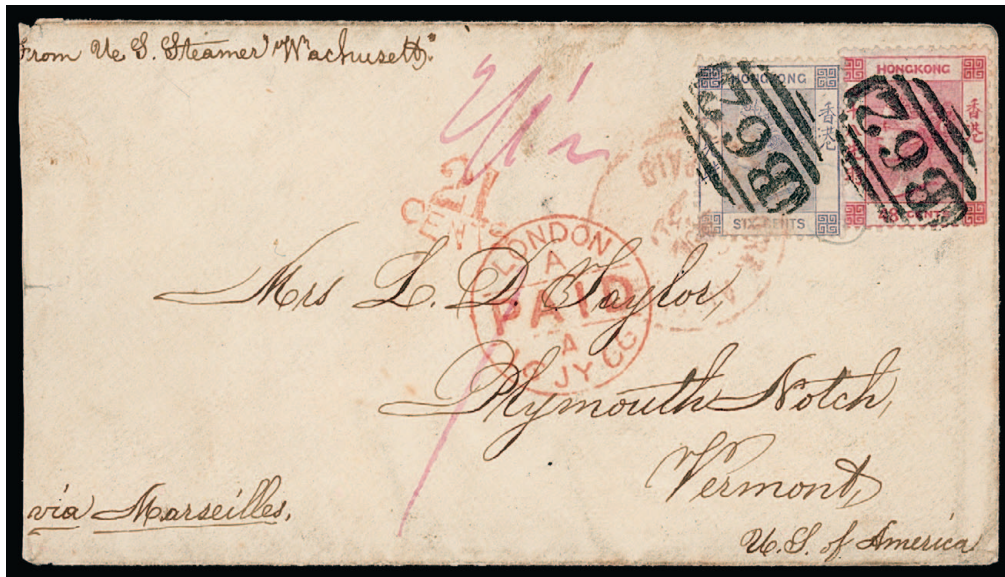 From U. S. Steamer "Wachusett."
HONGKONG
香港
B62
SIX CENTS
HONGKONG
香港
B62
48 CENTS
CENTS
LONDON
A
PAID
A
JY 66
Mrs L. D. Taylor,
Plymouth Notch,
Vermont,
U. S. of America
via Marseilles.